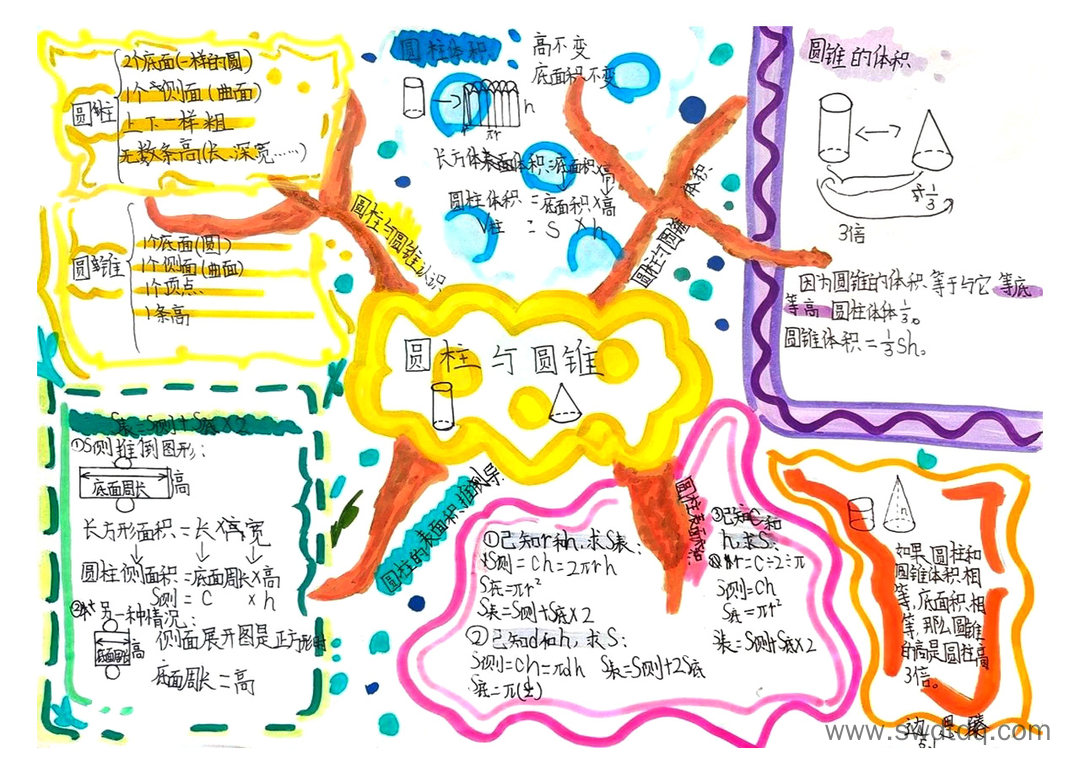 圆柱与圆锥
圆柱
2个底面(一样的圆)
1个侧面(曲面)
上下一样粗
无数条高(长、深宽……)
圆锥
1个底面(圆)
1个侧面(曲面)
1个顶点
1条高
圆柱与圆锥认识
圆柱体积
高不变
底面积不变
h
πr
长方体体积=底面积×高
圆柱体积=底面积×高
V柱 = S × h
圆柱与圆锥体积
圆锥的体积
1/3
3倍
因为圆锥的体积等于与它等底
等高圆柱体体1/3。
圆锥体积=1/3Sh。
S表=S侧+S底×2
①S侧推倒图形:
底面周长
高
长方形面积=长×宽
圆柱侧面积=底面周长×高
S侧 = C × h
②另一种情况:
底面周长
高
侧面展开图是正方形时
底面周长=高
圆柱的表面积推导
圆柱表面积
①已知r和h,求S表:
S侧=Ch=2πrh
S底=πr²
S表=S侧+S底×2
②已知d和h,求S:
S侧=Ch=πdh S表=S侧+2S底
③已知C和
h,求S:
r=C÷2÷π
S侧=Ch
S底=πr²
S表=S侧+S底×2
h
如果圆柱和
圆锥体积相
等,底面积相
等,那么圆锥
的高是圆柱高
3倍。
www.swdtdq.com